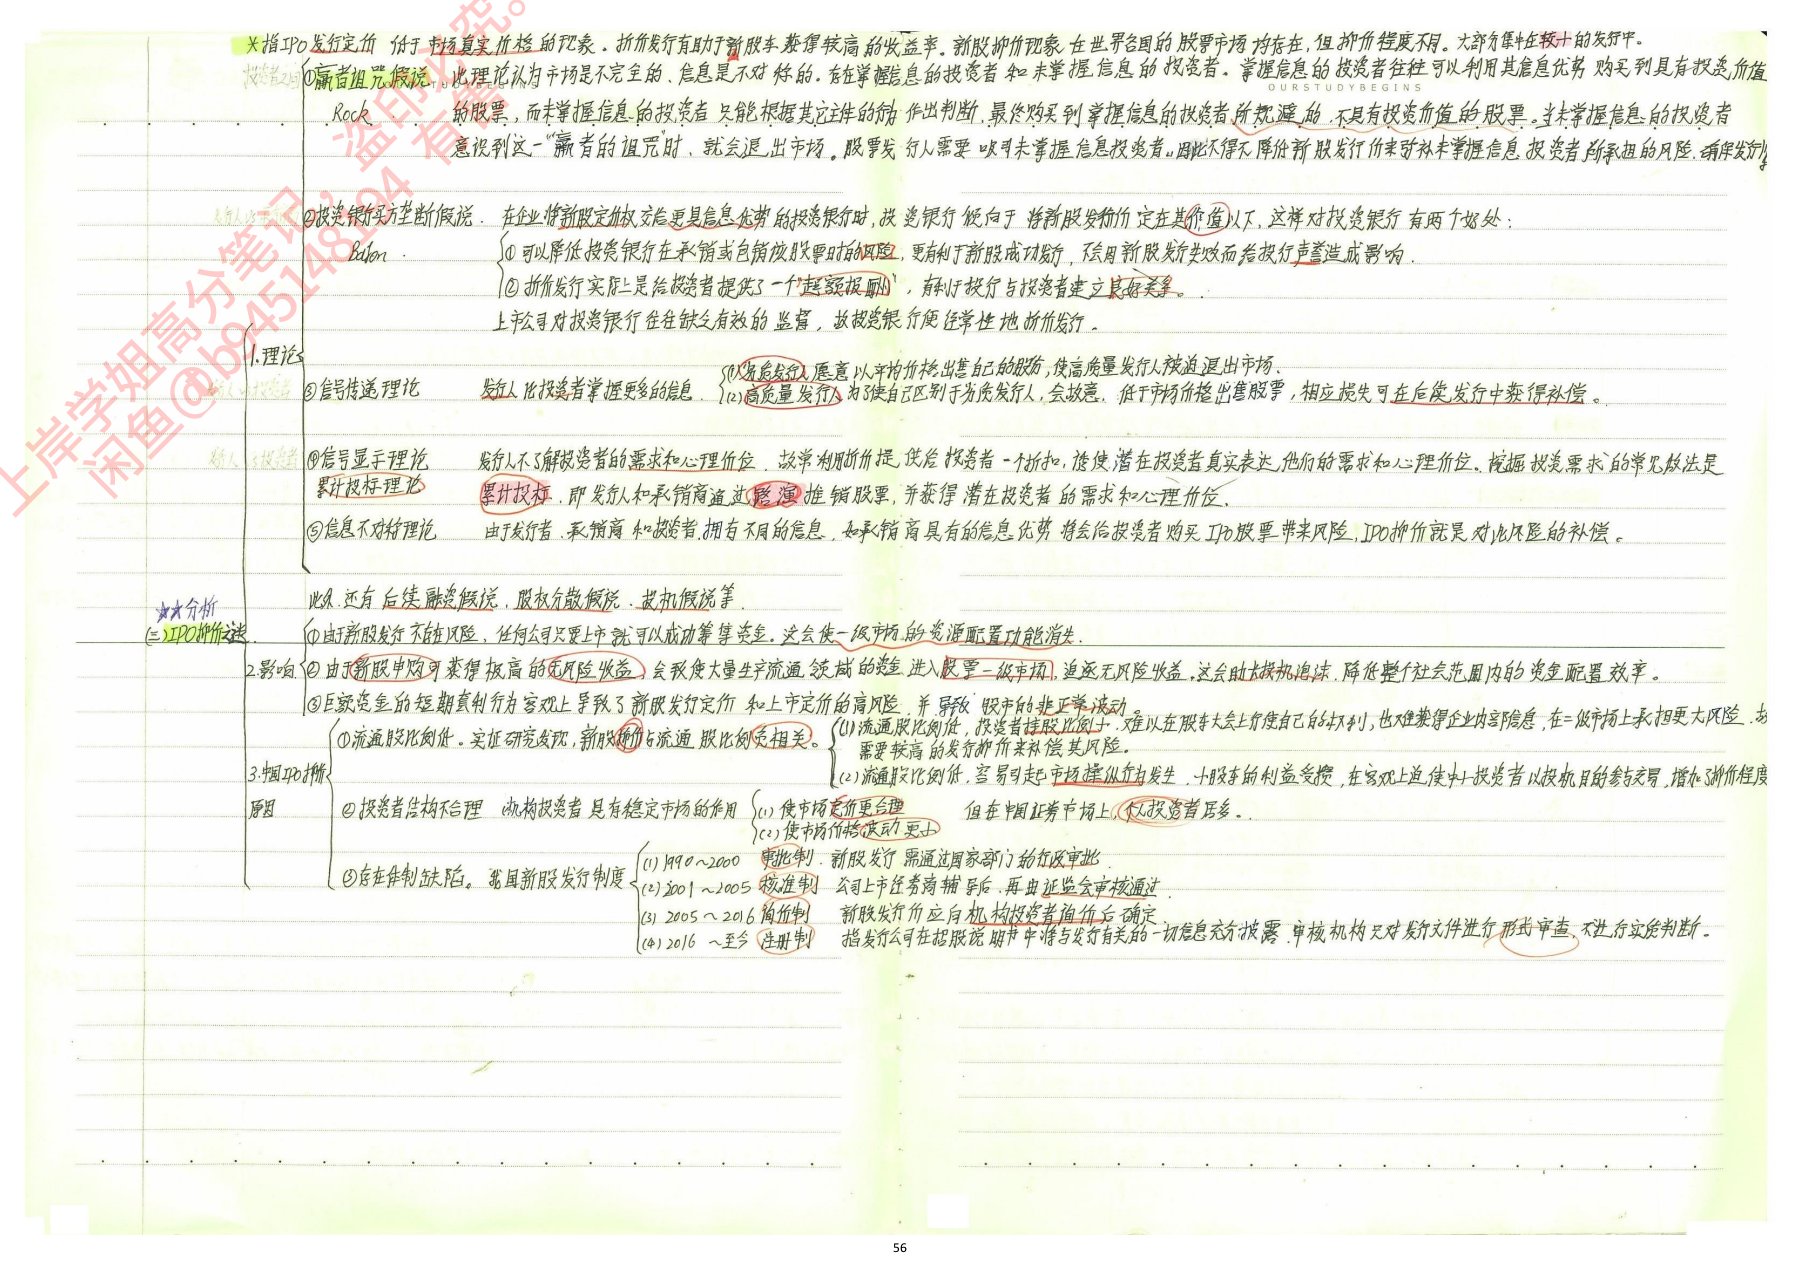 *指IPO发行定价 低于市场真实价格的现象。折价发行有助于新股东获得较高的收益率。新股抑价现象在世界各国的股票市场均存在,但抑价程度不同。大部分集中在较小的发行中。
①赢者诅咒假说 此理论认为市场是不完全的、信息是不对称的。存在掌握信息的投资者和未掌握信息的投资者。掌握信息的投资者往往可以利用其信息优势 购买到具有投资价值
OURSTUDYBEGINS
Rock 的股票,而未掌握信息的投资者只能根据其它主体的行动作出判断,最终购买到掌握信息的投资者所规避的、不具有投资价值的股票。当未掌握信息的投资者
意识到这一"赢者的诅咒"时、就会退出市场。股票发行人需要吸引未掌握信息投资者。因此不得不降低新股发行价来弥补未掌握信息投资者所承担的风险.
②投资银行买方垄断假说. 在企业将新股定价权交给更具信息优势的投资银行时,投资银行倾向于将新股发行价定在其价值以下,这样对投资银行有两个好处:
①可以降低投资银行在承销或包销该股票时的风险,更有利于新股成功发行,不会因新股发行失败而给投行声誉造成影响.
②折价发行实际上是给投资者提供了一个"超额报酬",有利于投行与投资者建立良好关系。
上市公司对投资银行往往缺乏有效的监督,故投资银行便经常性地折价发行。
1.理论
③信号传递理论 发行人比投资者掌握更多的信息.
(1)劣质发行人愿意以平均价格出售自己的股份,使高质量发行人被迫退出市场.
(2)高质量发行人为了使自己区别于劣质发行人,会故意.低于市场价格出售股票,相应损失可在后续发行中获得补偿。
④信号显示理论 发行人不了解投资者的需求和心理价位.故常利用折价提供给投资者一个折扣,诱使潜在投资者真实表达他们的需求和心理价位。挖掘投资需求的常见做法是
累计投标理论 累计投标.即发行人和承销商通过路演推销股票,并获得潜在投资者的需求和心理价位.
⑤信息不对称理论 由于发行者、承销商和投资者拥有不同的信息,如承销商具有的信息优势将会给投资者购买IPO股票带来风险,IPO抑价就是对此风险的补偿。
此外.还有后续融资假说、股权分散假说、投机假说等.
★★分析
(三)IPO抑价之谜.
①由于新股发行不存在风险,任何公司只要上市就可以成功筹集资金。这会使一级市场的资源配置功能消失.
2.影响 ②由于新股申购可获得极高的无风险收益,会致使大量生产流通领域的资金进入股票一级市场,追逐无风险收益。这会助长投机泡沫,降低整个社会范围内的资金配置效率。
③巨额资金的短期套利行为客观上导致了新股发行定价和上市定价的高风险.并导致股市的非正常波动.
①流通股比例低。实证研究发现,新股抑价与流通股比例负相关。
(1)流通股比例低,投资者持股比例小.难以在股东大会上行使自己的权利,也难获得企业内部信息,在二级市场上承担更大风险.故
需要较高的发行抑价来补偿其风险。
(2)流通股比例低.容易引起市场操纵行为发生.小股东的利益受损,在客观上迫使中小投资者以投机目的参与交易,增加了抑价程度
3.中国IPO抑价
原因
②投资者结构不合理 机构投资者具有稳定市场的作用
(1)使市场定价更合理
(2)使市场价格波动更小
但在中国证券市场上,个人投资者居多。
③存在体制缺陷。我国新股发行制度
(1)1990~2000 审批制.新股发行需通过国家部门的行政审批.
(2)2001~2005 核准制 公司上市经券商辅导后.再由证监会审核通过.
(3)2005~2016 询价制 新股发行价应向机构投资者询价后确定
(4)2016~至今 注册制 指发行公司在招股说明书中将与发行有关的一切信息充分披露.审核机构只对发行文件进行形式审查,不进行实质判断。
上岸学姐高分笔记,盗印必究。
闲鱼@b945148194 有售
56